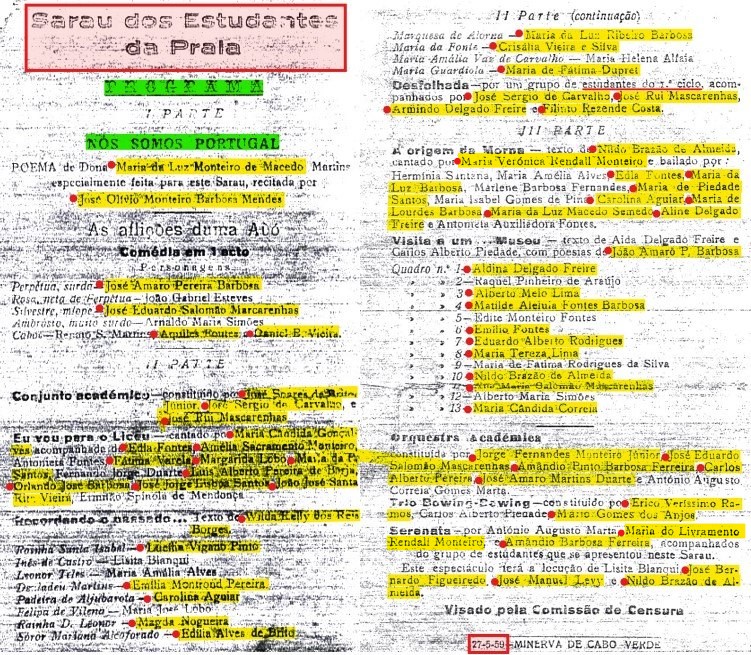 Sarau dos Estudantes
da Praia
PROGRAMA
I PARTE
NÓS SOMOS PORTUGAL
POEMA de Dona Maria da Luz Monteiro de Macedo Martins
especialmente feita para este Sarau, recitada por
José Olívio Monteiro Barbosa Mendes
As aflições duma Avó
Comédia em 1 acto
Personagens
Perpétua, surda — José Amaro Pereira Barbosa
Rosa, neta de Perpétua — João Gabriel Esteves
Silvestre, míope — José Eduardo Salomão Mascarenhas
Ambrósio, muito surdo — Arnaldo Maria Simões
Cabos — Renato S. Martins, Aquiles Fontes, Daniel E. Vieira.
II PARTE
Conjunto académico — constituído por José Soares de Brito
Júnior, José Sérgio de Carvalho, e
José Rui Mascarenhas
Eu vou para o Liceu — cantado por Maria Cândida Gonçal-
ves acompanhado de Edla Fontes, Amélia Sacramento Monteiro,
Antonieta Fontes, Margarida Lobo, Maria da P.
Santos, Fernando Jorge Duarte, Luís Alberto Ferreira de Borja,
Orlando José Barbosa, José Jorge Lisboa Santos, João José Santa
Rita Vieira, Ermitão Spínola de Mendonça
Recordando o passado... Texto de Wilda Kelly dos Reis
Borges.
Rainha Santa Isabel — Lucília Vigano Pinto
Inês de Castro — Lisita Bianqui
Leonor Teles — Maria Amália Alves
Deuladeu Martins — Emília Montrond Pereira.
Padeira de Aljubarota — Carolina Aguiar
Felipa de Vilena — Maria José Lobo
Rainha D. Leonor — Magda Nogueira
Soror Mariana Alcoforado — Edília Alves de Brito.
II Parte (continuação)
Marquesa de Alorna — Maria da Luz Ribeiro Barbosa
Maria da Fonte — Crisália Vieira e Silva
Maria Amália Vaz de Carvalho — Maria Helena Alfaia
Maria Guardiola — Maria de Fátima Dupret
Desfolhada — por um grupo de estudantes do 1.º ciclo, acom-
panhados por José Sérgio de Carvalho, José Rui Mascarenhas,
Armindo Delgado Freire e Filinto Rezende Costa.
III PARTE
A origem da Morna — texto de Nildo Brazão de Almeida,
cantado por Maria Verónica Rendall Monteiro e bailado por:
Hermínia Santana, Maria Amélia Alves, Edla Fontes, Maria da
Luz Barbosa, Marlene Barbosa Fernandes, Maria de Piedade
Santos, Maria Isabel Gomes de Pina, Carolina Aguiar, Maria de
Lourdes Barbosa, Maria da Luz Macedo Semedo, Aline Delgado
Freire e Antonieta Auxiliadora Fontes.
Visita a um... Museu — texto de Aida Delgado Freire e
Carlos Alberto Piedade, com poesias de João Amaro P. Barbosa
Quadro n.º 1 — Aldina Delgado Freire
» » 2 — Raquel Pinheiro de Araújo
» » 3 — Alberto Melo Lima
» » 4 — Matilde Aleluia Fontes Barbosa
» » 5 — Edite Monteiro Fontes
» » 6 — Emília Fontes
» » 7 — Eduardo Alberto Rodrigues
» » 8 — Maria Tereza Lima
» » 9 — Maria de Fátima Rodrigues da Silva
» » 10 — Nildo Brazão de Almeida
» » 11 — Ana Maria Salomão Mascarenhas
» » 12 — Alberto Maria Simões
» » 13 — Maria Cândida Correia
Orquestra Académica
constituída por Jorge Fernandes Monteiro Júnior, José Eduardo
Salomão Mascarenhas, Amândio Pinto Barbosa Ferreira, Carlos
Alberto Pereira, José Amaro Martins Duarte e António Augusto
Correia Gomes Marta.
Trio Bowing-Cowing — constituído por Erico Veríssimo Ra-
mos, Carlos Alberto Piedade, Mário Gomes dos Anjos.
Serenata — por António Augusto Marta, Maria do Livramento
Rendall Monteiro, e Amândio Barbosa Ferreira, acompanhados
do grupo de estudantes que se apresentou neste Sarau.
Este espectáculo terá a locução de Lisita Bianqui, José Ber-
nardo Figueiredo, José Manuel Levy e Nildo Brazão de Al-
meida.
Visado pela Comissão de Censura
27-5-59 — MINERVA DE CABO VERDE